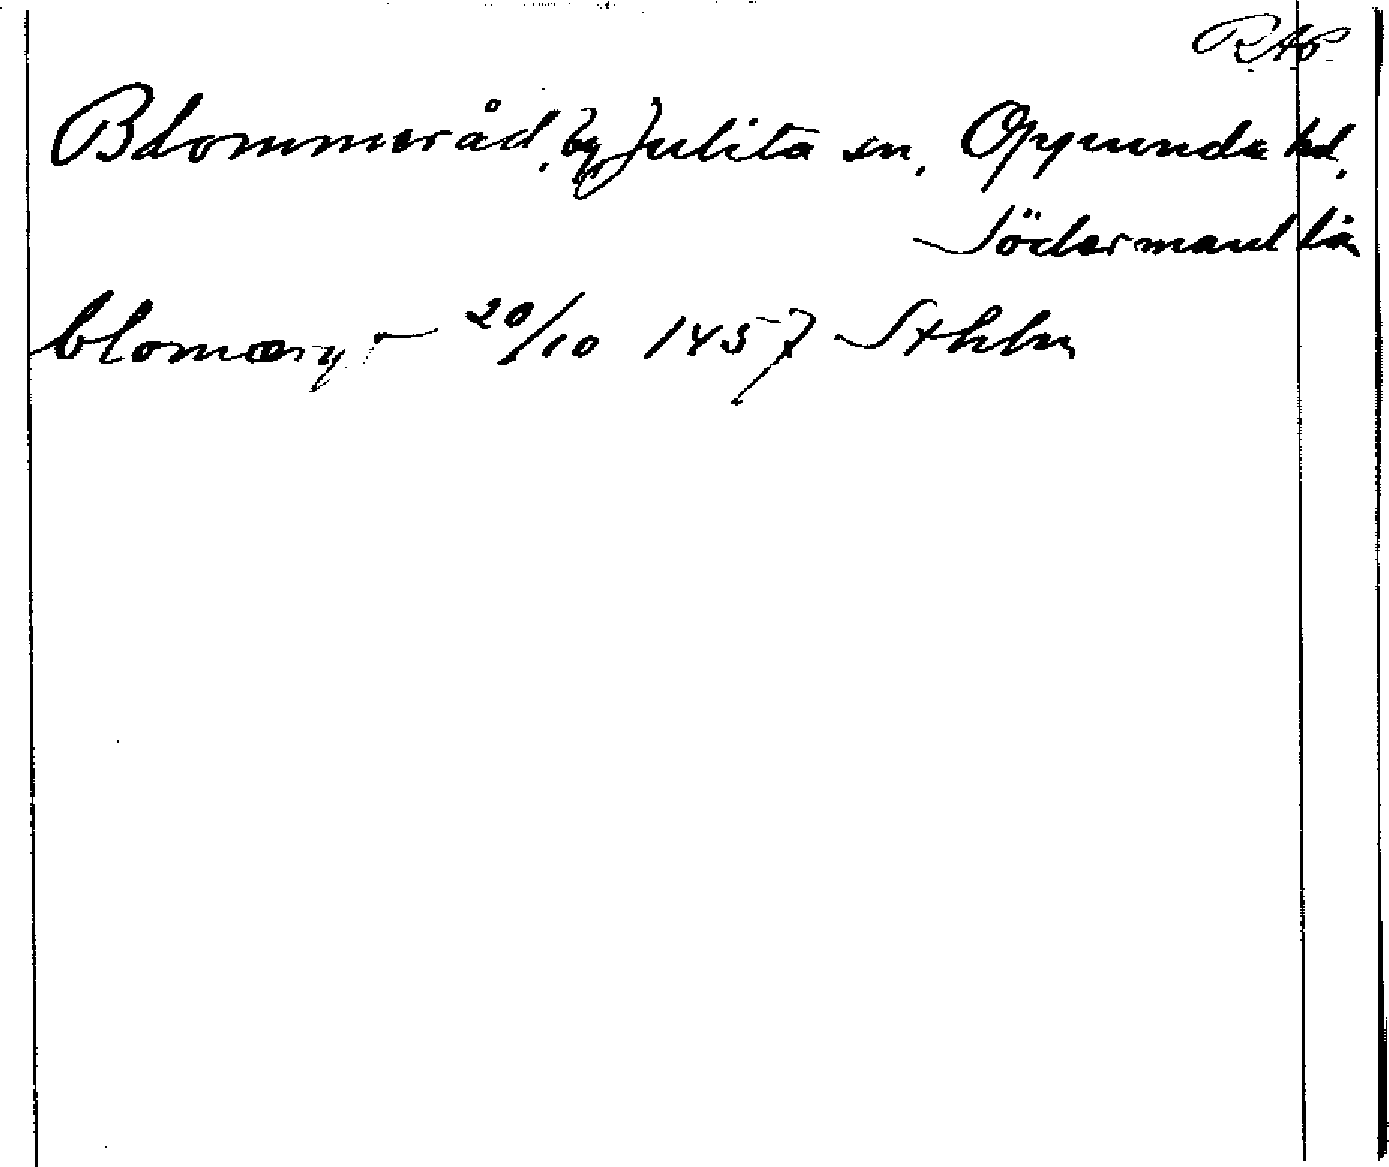 RAP
Blommeråd, by, Julita sn, Oppunda hd,
Södermanl län
blomæry 20/10 1457 Sthlm